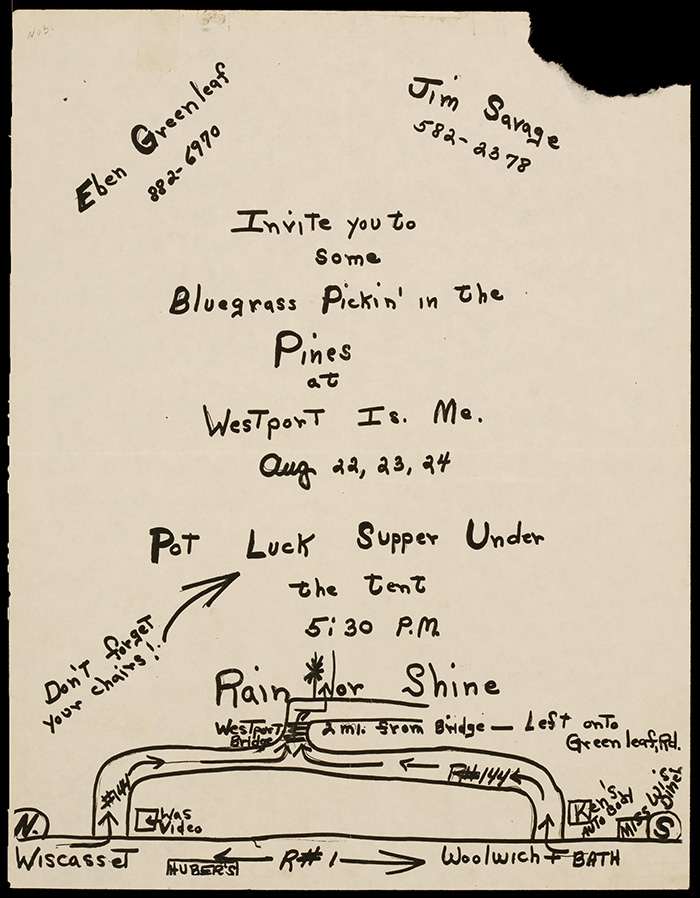 No3.
Eben Greenleaf
882-6970
Jim Savage
582-2378
Invite you to
some
Bluegrass Pickin' in the
Pines
at
Westport Is. Me.
Aug 22, 23, 24
Pot Luck Supper Under
the tent
5:30 P.M.
Don't forget
your chairs!
Rain or Shine
Westport
Bridge
2 mi. from Bridge — Left onto
Greenleaf, Rd.
#144
R#144
Was
Video
Ken's
Auto Body
Miss Wis
Diner
N.
S
Wiscasset
HUBER'S
R#1
Woolwich + BATH